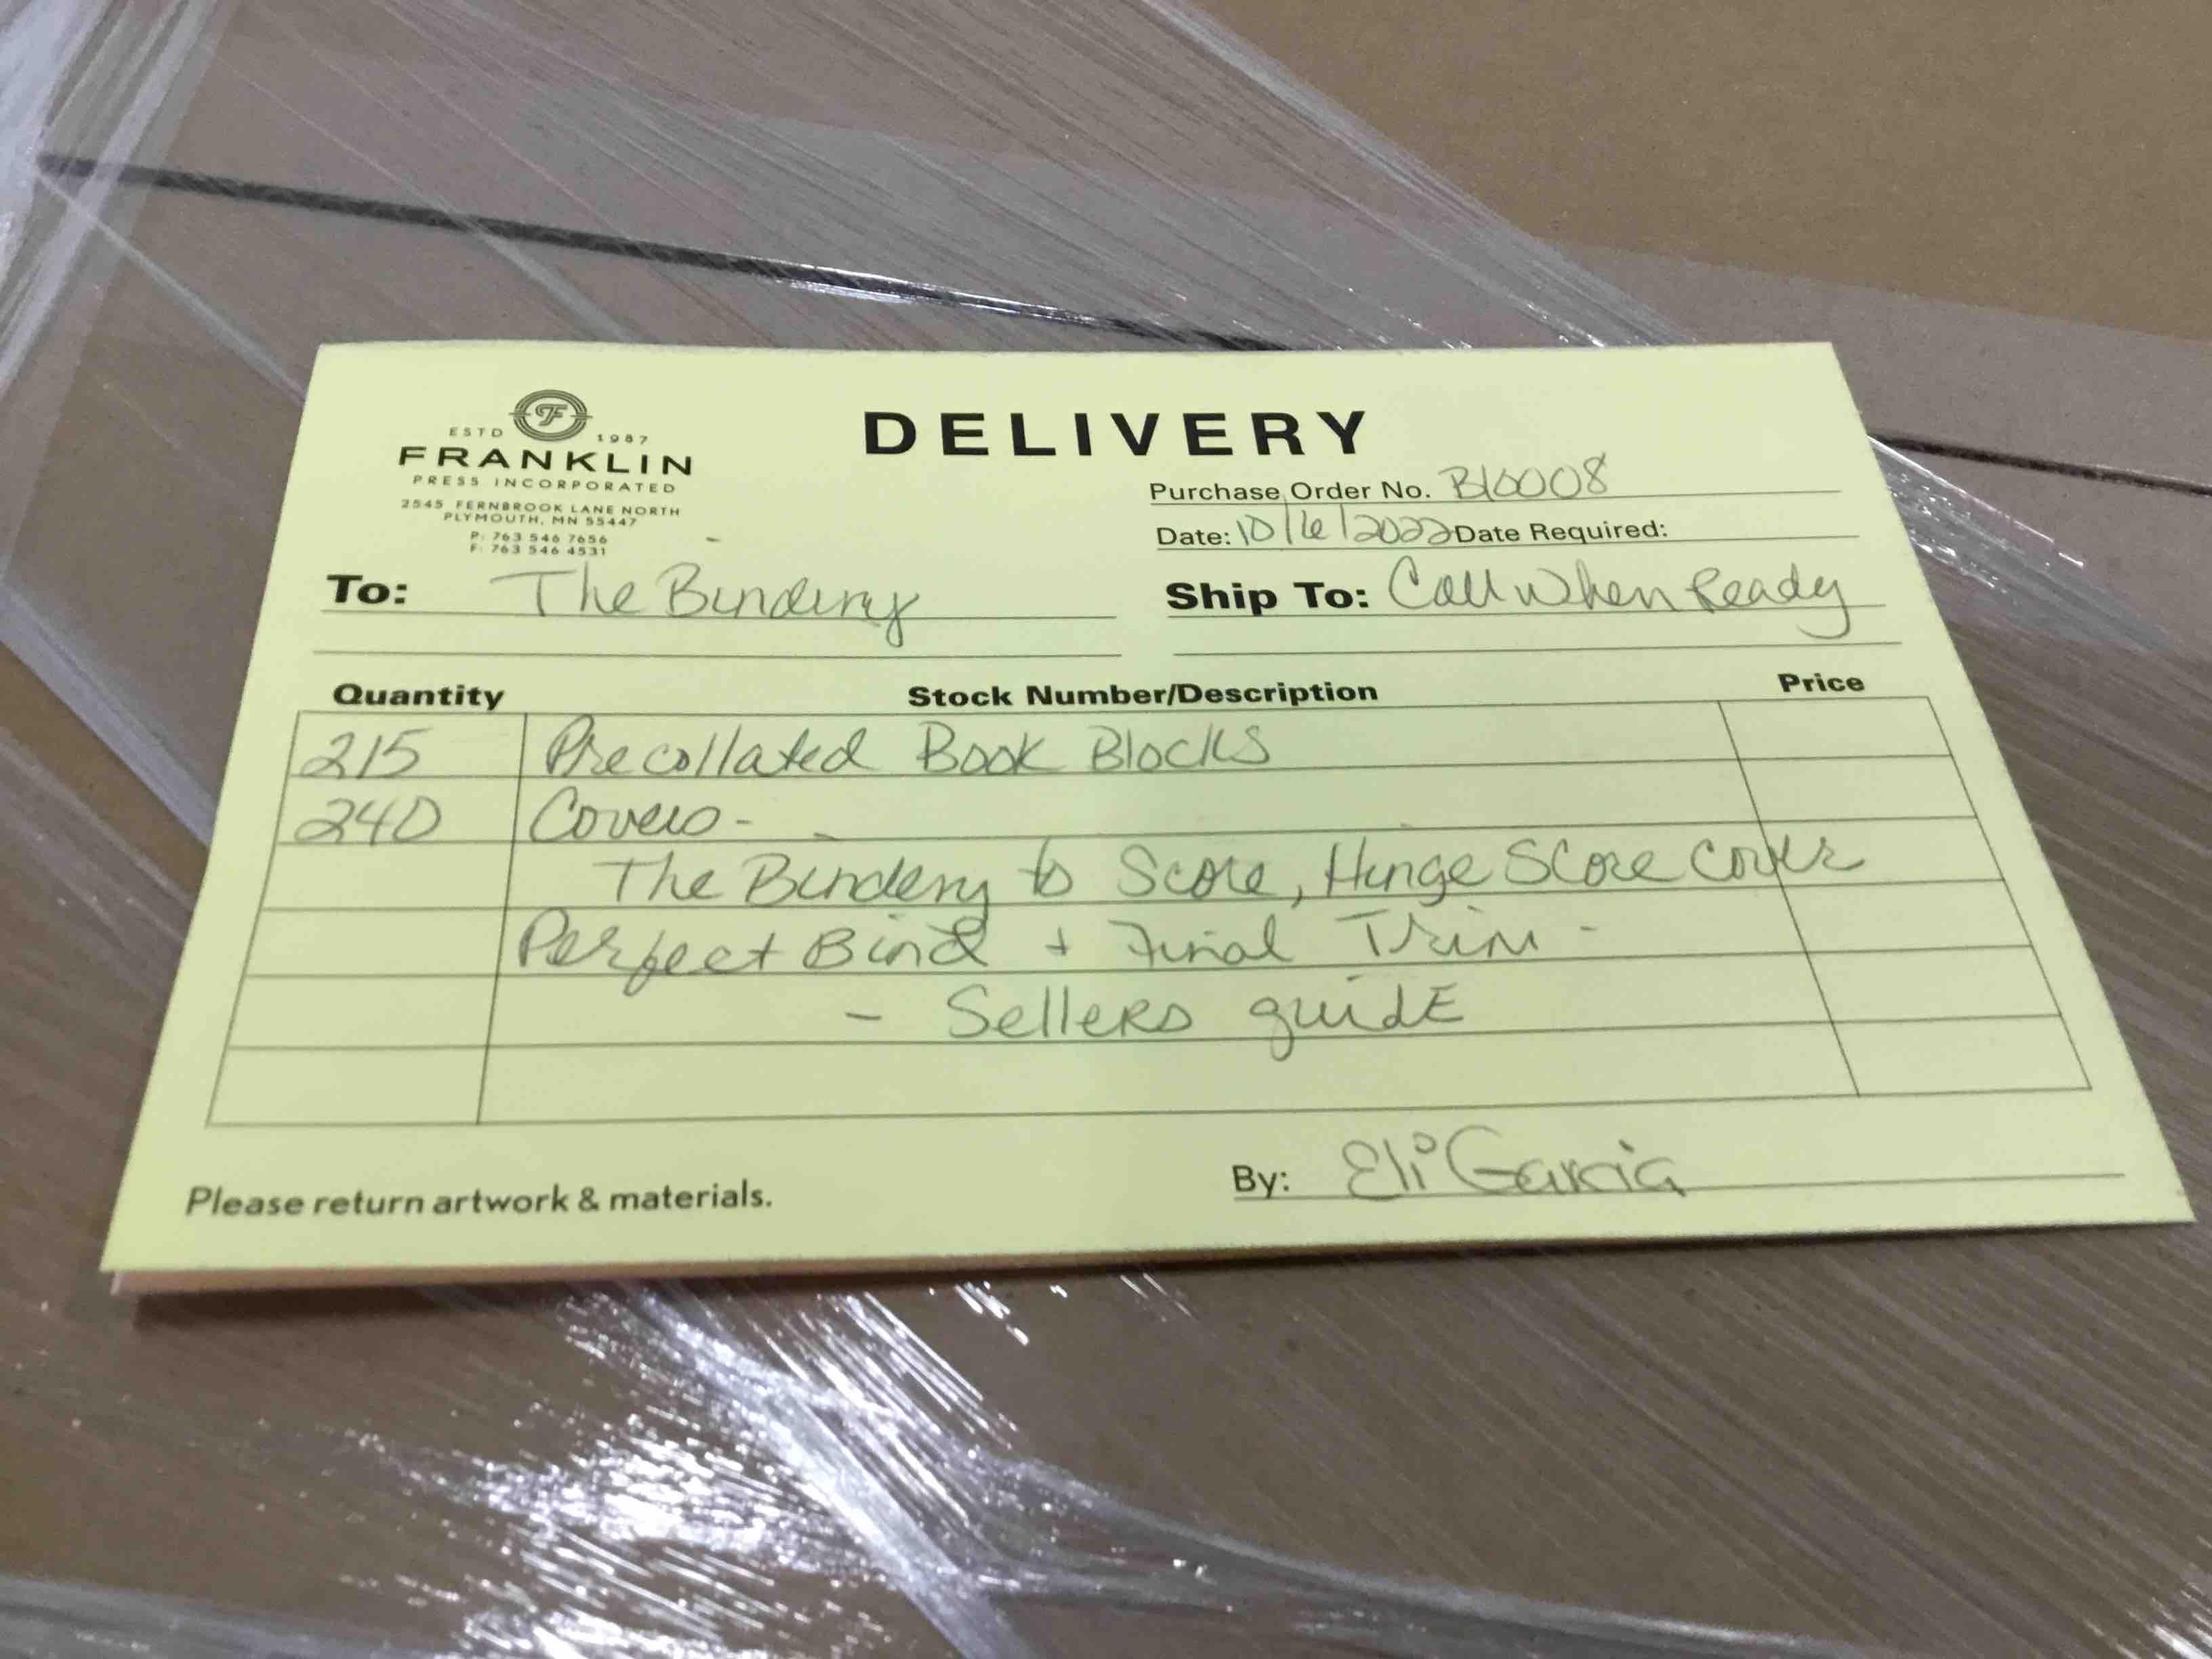 ESTD 1987
FRANKLIN
PRESS INCORPORATED
2545 FERNBROOK LANE NORTH
PLYMOUTH, MN 55447
P: 763 546 7656
F: 763 546 4531
DELIVERY
Purchase Order No. B10008
Date: 10/6/2022 Date Required:
To: The Bindery
Ship To: Call When Ready
Quantity Stock Number/Description Price
215 Precollated Book Blocks
240 Covers -
The Bindery to Score, Hinge Score Cover
Perfect Bind + Final Trim -
- Sellers guide
Please return artwork & materials.
By: Eli Garcia